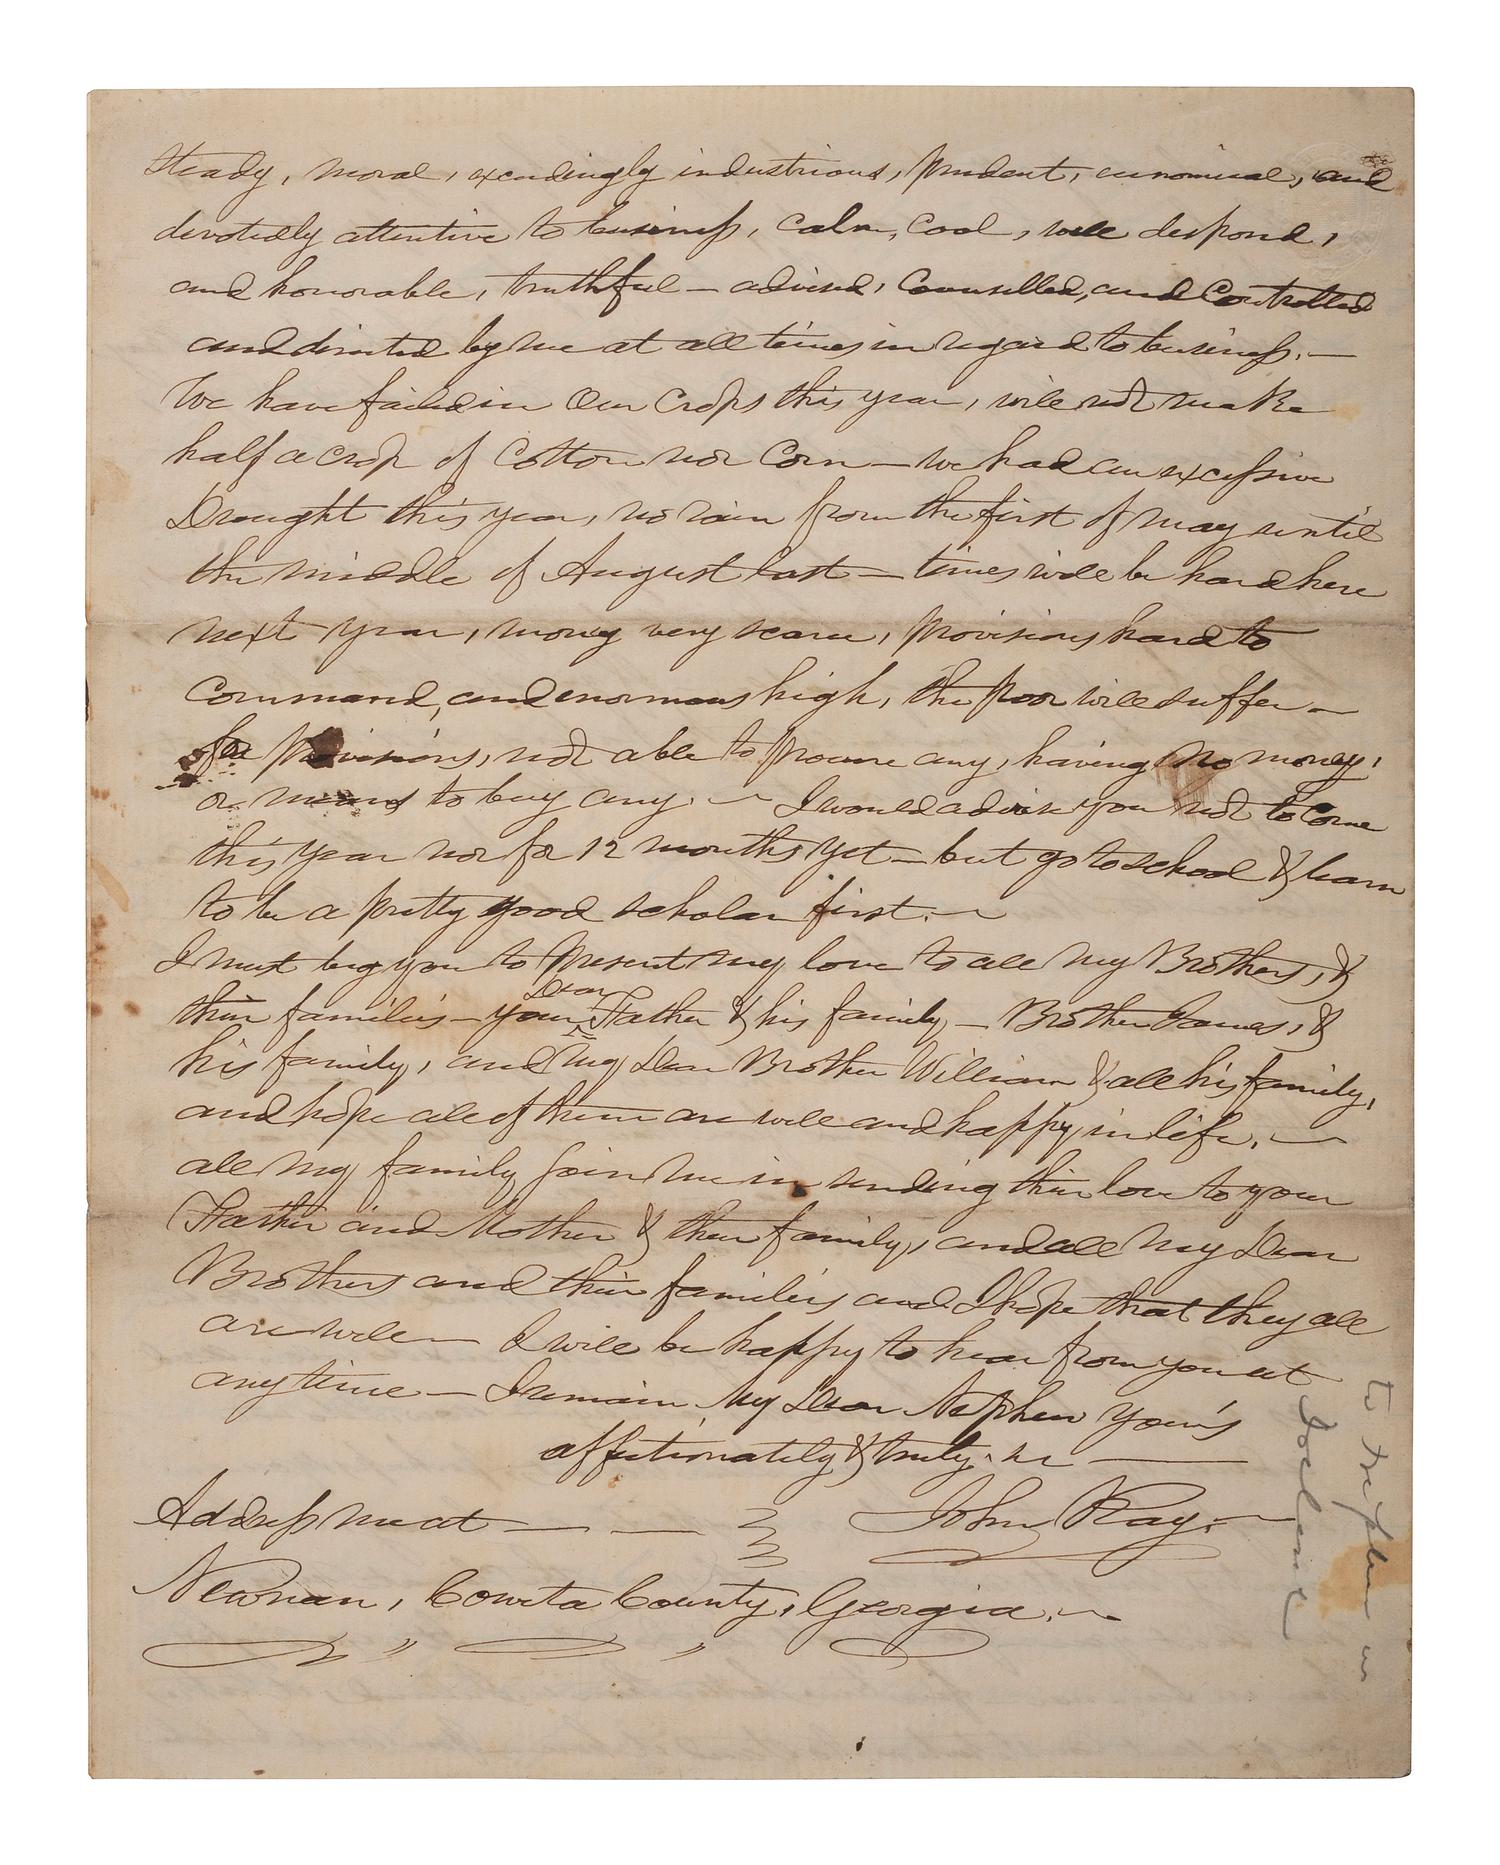 Steady, moral, exceedingly industrious, prudent, economical, and
devotedly attentive to business, calm, cool, well disposed,
and honorable, truthful — advised, Counselled, and Controlled
and directed by me at all times in regard to business. —
We have failed in Our Crops this year, will not make
half a crop of Cotton nor Corn — we had an excessive
Drought this year, no rain from the first of may until
the middle of August last — times will be hard here
next year, money very scarce, provisions hard to
Command, and enormous high, the poor will suffer —
for provisions, not able to procure any, having no money,
or means to buy any. — I would advise you not to Come
this year nor for 12 months yet — but go to school & learn
to be a pretty good scholar first. —
I must beg you to present my love to all my Brothers, &
their families — your Dear Father & his family — Brother James, &
his family, and my Dear Brother William & all his family,
and hope all of them are well and happy in life. —
all my family join me in sending their love to your
Father and Mother & their family, and all my Dear
Brothers and their families and I hope that they all
are well — I will be happy to hear from you at
any time — I remain My Dear Nephew Your's
affectionately & truly. &c —
Address me at — — John Ray. —
Newnan, Coweta County, Georgia. —
to nephew in
Ireland